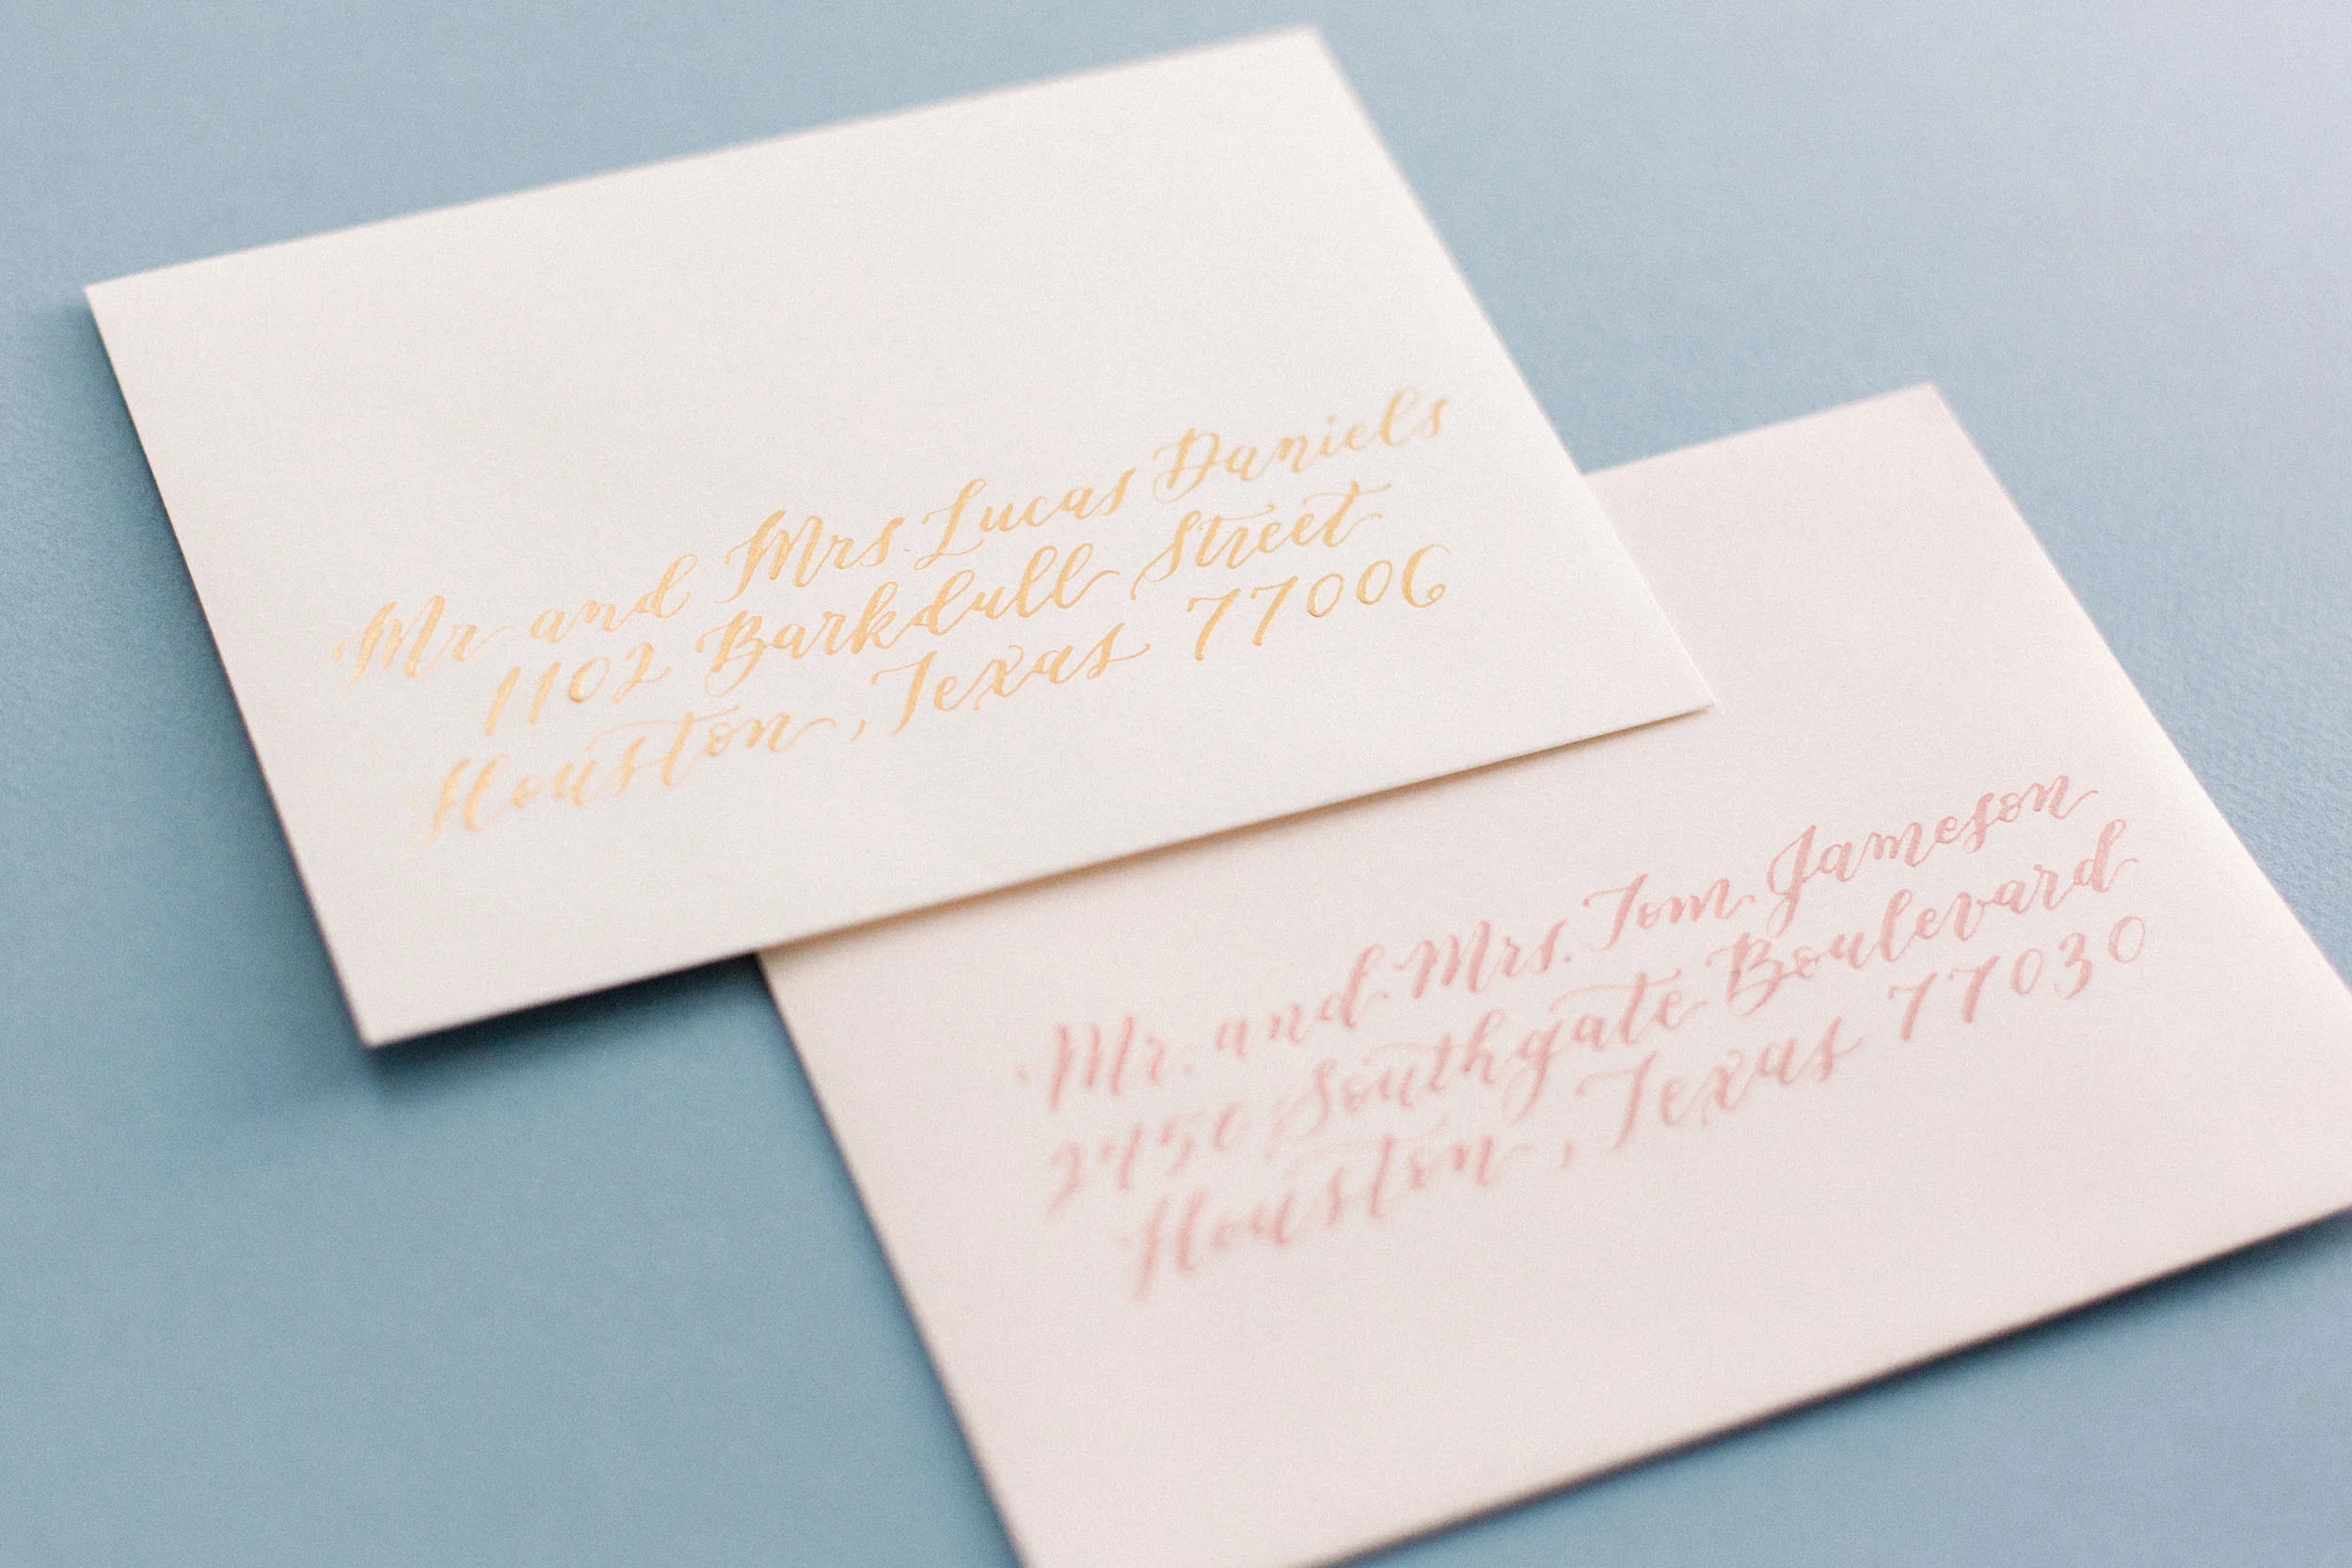 Mr. and Mrs. Lucas Daniels
1102 Barkdull Street
Houston, Texas 77006
Mr. and Mrs. Tom Jameson
2450 Southgate Boulevard
Houston, Texas 77030